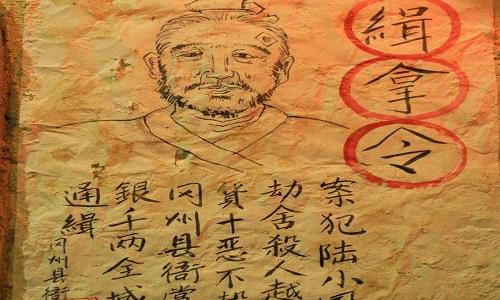 緝拿令
案犯陸小
劫舍殺人越
貨十惡不赦
冈州县衙賞
銀千两全城
通緝
冈州县衙